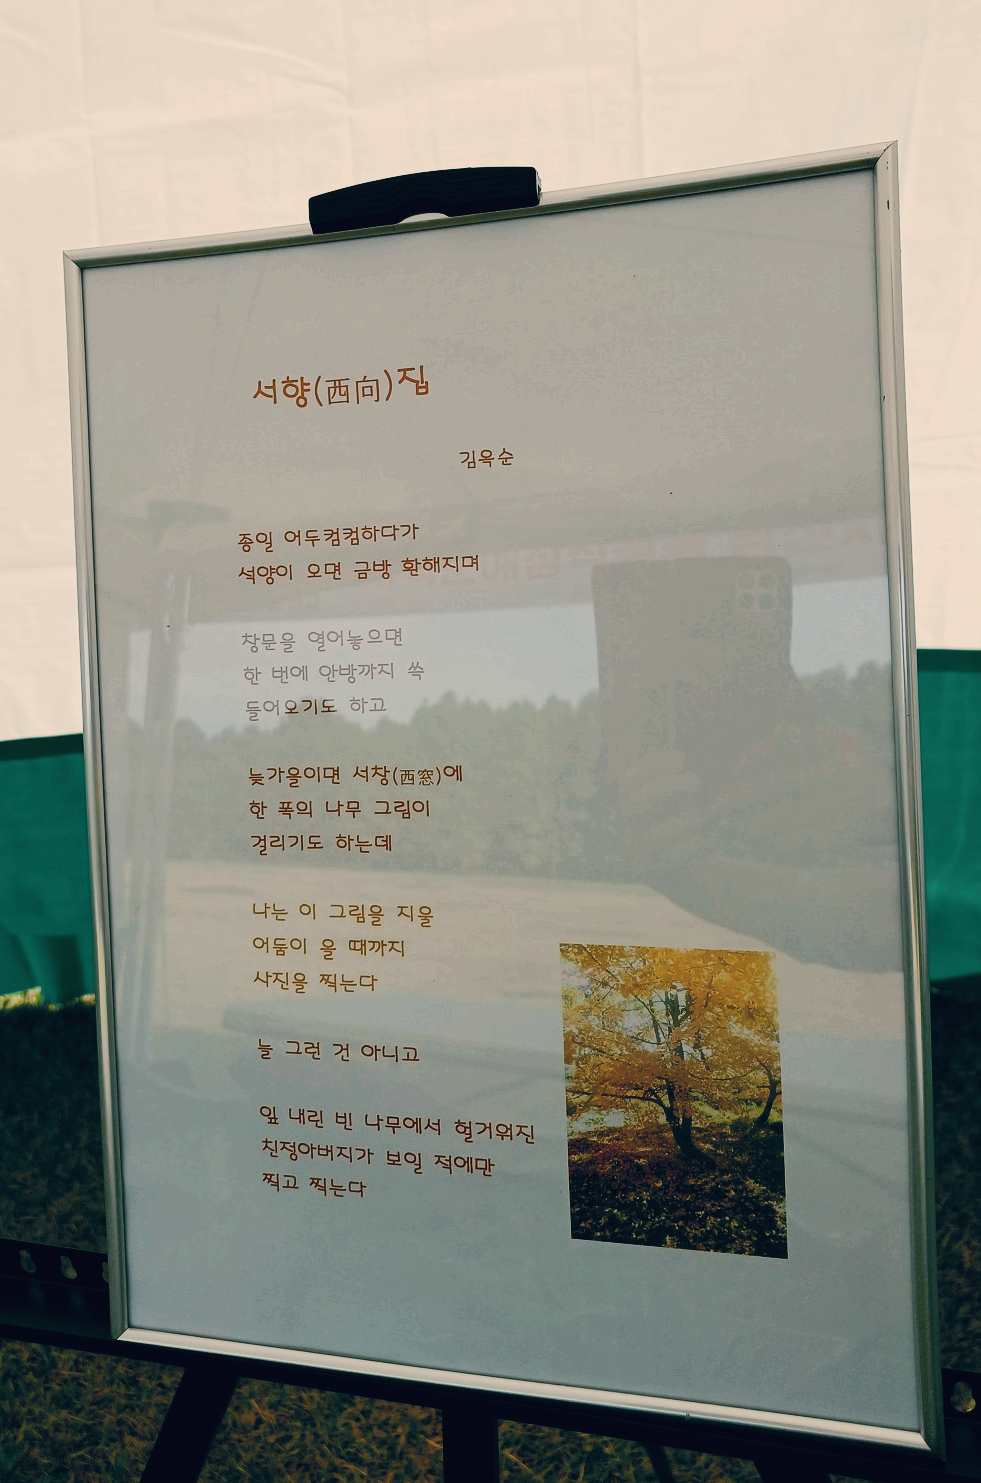 서향(西向)집
김옥순
종일 어두컴컴하다가
석양이 오면 금방 환해지며
창문을 열어놓으면
한 번에 안방까지 쓱
들어오기도 하고
늦가을이면 서창(西窓)에
한 폭의 나무 그림이
걸리기도 하는데
나는 이 그림을 지울
어둠이 올 때까지
사진을 찍는다
늘 그런 건 아니고
잎 내린 빈 나무에서 헐거워진
친정아버지가 보일 적에만
찍고 찍는다